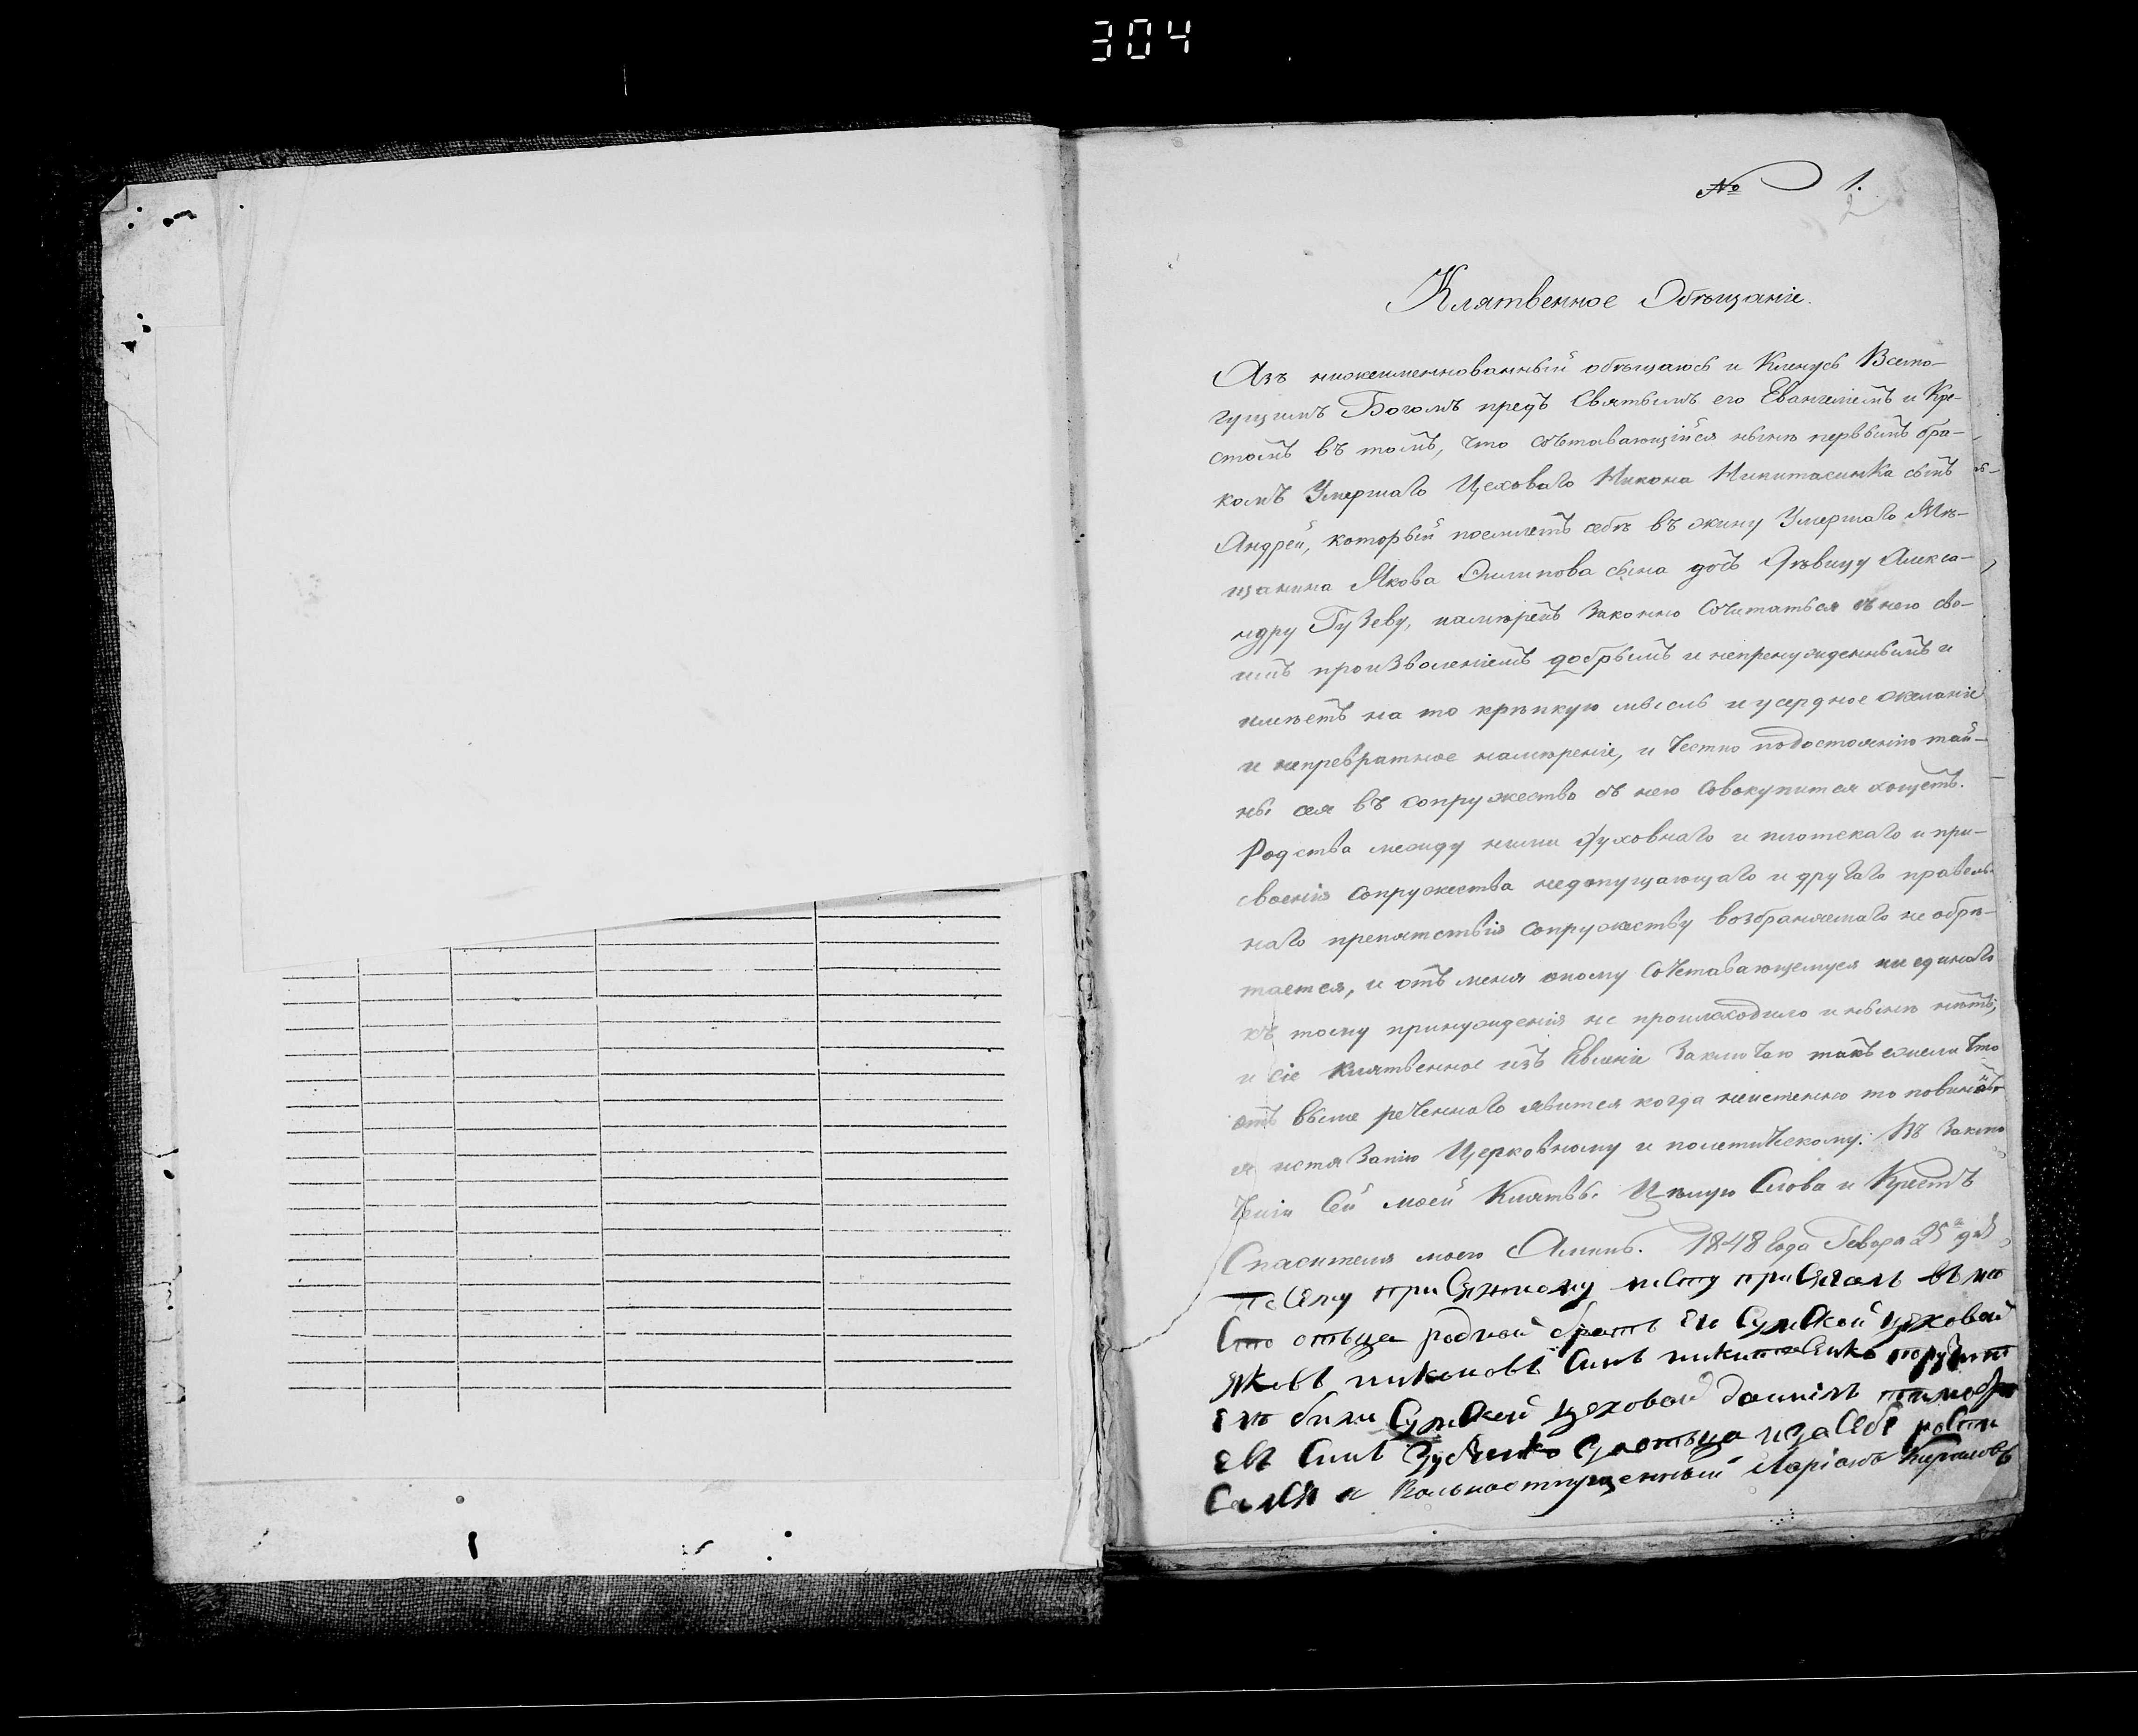 304
№ 1.
2
Клятвенное Обѣщаніе.
Азъ нижеименнованный обѣщаюсь и Кленусь Всемо-
гущимъ Богомъ предъ Святымъ его Евангеліемъ и Кре-
стомъ въ томъ, что сочетавающійся нынѣ первымъ бра-
комъ Умершаго Цеховаго Никона Никитасинка сынъ
Андрей, который поемлетъ себѣ въ жину Умершаго Мѣ-
щанина Якова Филипова сына дочь Дѣвицу Алекса-
ндру Гузеву, намѣренъ Законно Сочитаться съ нею сво-
имъ произволеніемъ добрымъ и непренужденнымъ и
имѣетъ на то крѣпкую мысль и усердное желаніе
и непревратное намѣреніе, и Честно подостоянію тай-
ны сея въ сопружество съ нею Совокупится хощетъ.
Родства между ними духовнаго и плотскаго и при-
своенія Сопружества недопущающаго и другаго правель-
наго препятствія Сопружеству возбраняемаго не обрѣ-
тается, и отъ меня оному Сочетавающемуся ни единаго
къ тому принужденія не происходило и нынѣ нѣтъ;
и сіе Клятвенное изъ Явленіе Заключаю такъ ежели Что
отъ выше реченнаго явится когда неистенно то повиненъ
я истязанію Церковному и политическому. Въ Заклю
ченіи Сей моей Клятвы Цѣлую Слова и Крестъ
Спасителя моего Аминь. 1848 Года Февра 25 дня
По Сему присяжному листу присягалъ вмѣ
Сто отьца родной братъ Его Сумской цеховой
Яковъ никоновъ Синъ никитаСенко поручит
Ели били Сумской цеховой даниилъ тимофе
Евъ Синъ Зубченко
Вольноотпущенный Ларіонъ Кириловъ